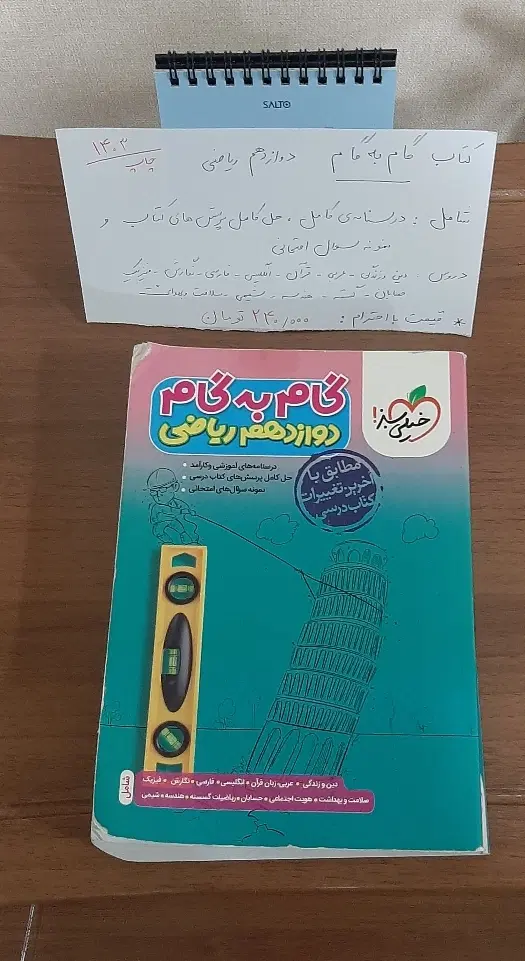 SALTO
کتاب گام به گام دوازدهم ریاضی چاپ ۱۴۰۳
شامل : درسنامه‌ی کامل ، حل کامل پرسش های کتاب و
نمونه سوال امتحانی
دروس : دین و زندگی - عربی - قرآن - انگلیسی - فارسی - نگارش - فیزیک
حسابان - گسسته - هندسه - شیمی - سلامت و بهداشت
* قیمت با احترام : ۲۴۰/۰۰۰ تومان
گام به گام
دوازدهم ریاضی
خیلی سبز!
درسنامه‌های آموزشی و کارآمد
حل کامل پرسش‌های کتاب درسی
نمونه سؤال‌های امتحانی
مطابق با
آخرین تغییرات
کتاب درسی
شامل
دین و زندگی • عربی، زبان قرآن • انگلیسی • فارسی • نگارش • فیزیک
سلامت و بهداشت • هویت اجتماعی • حسابان • ریاضیات گسسته • هندسه • شیمی